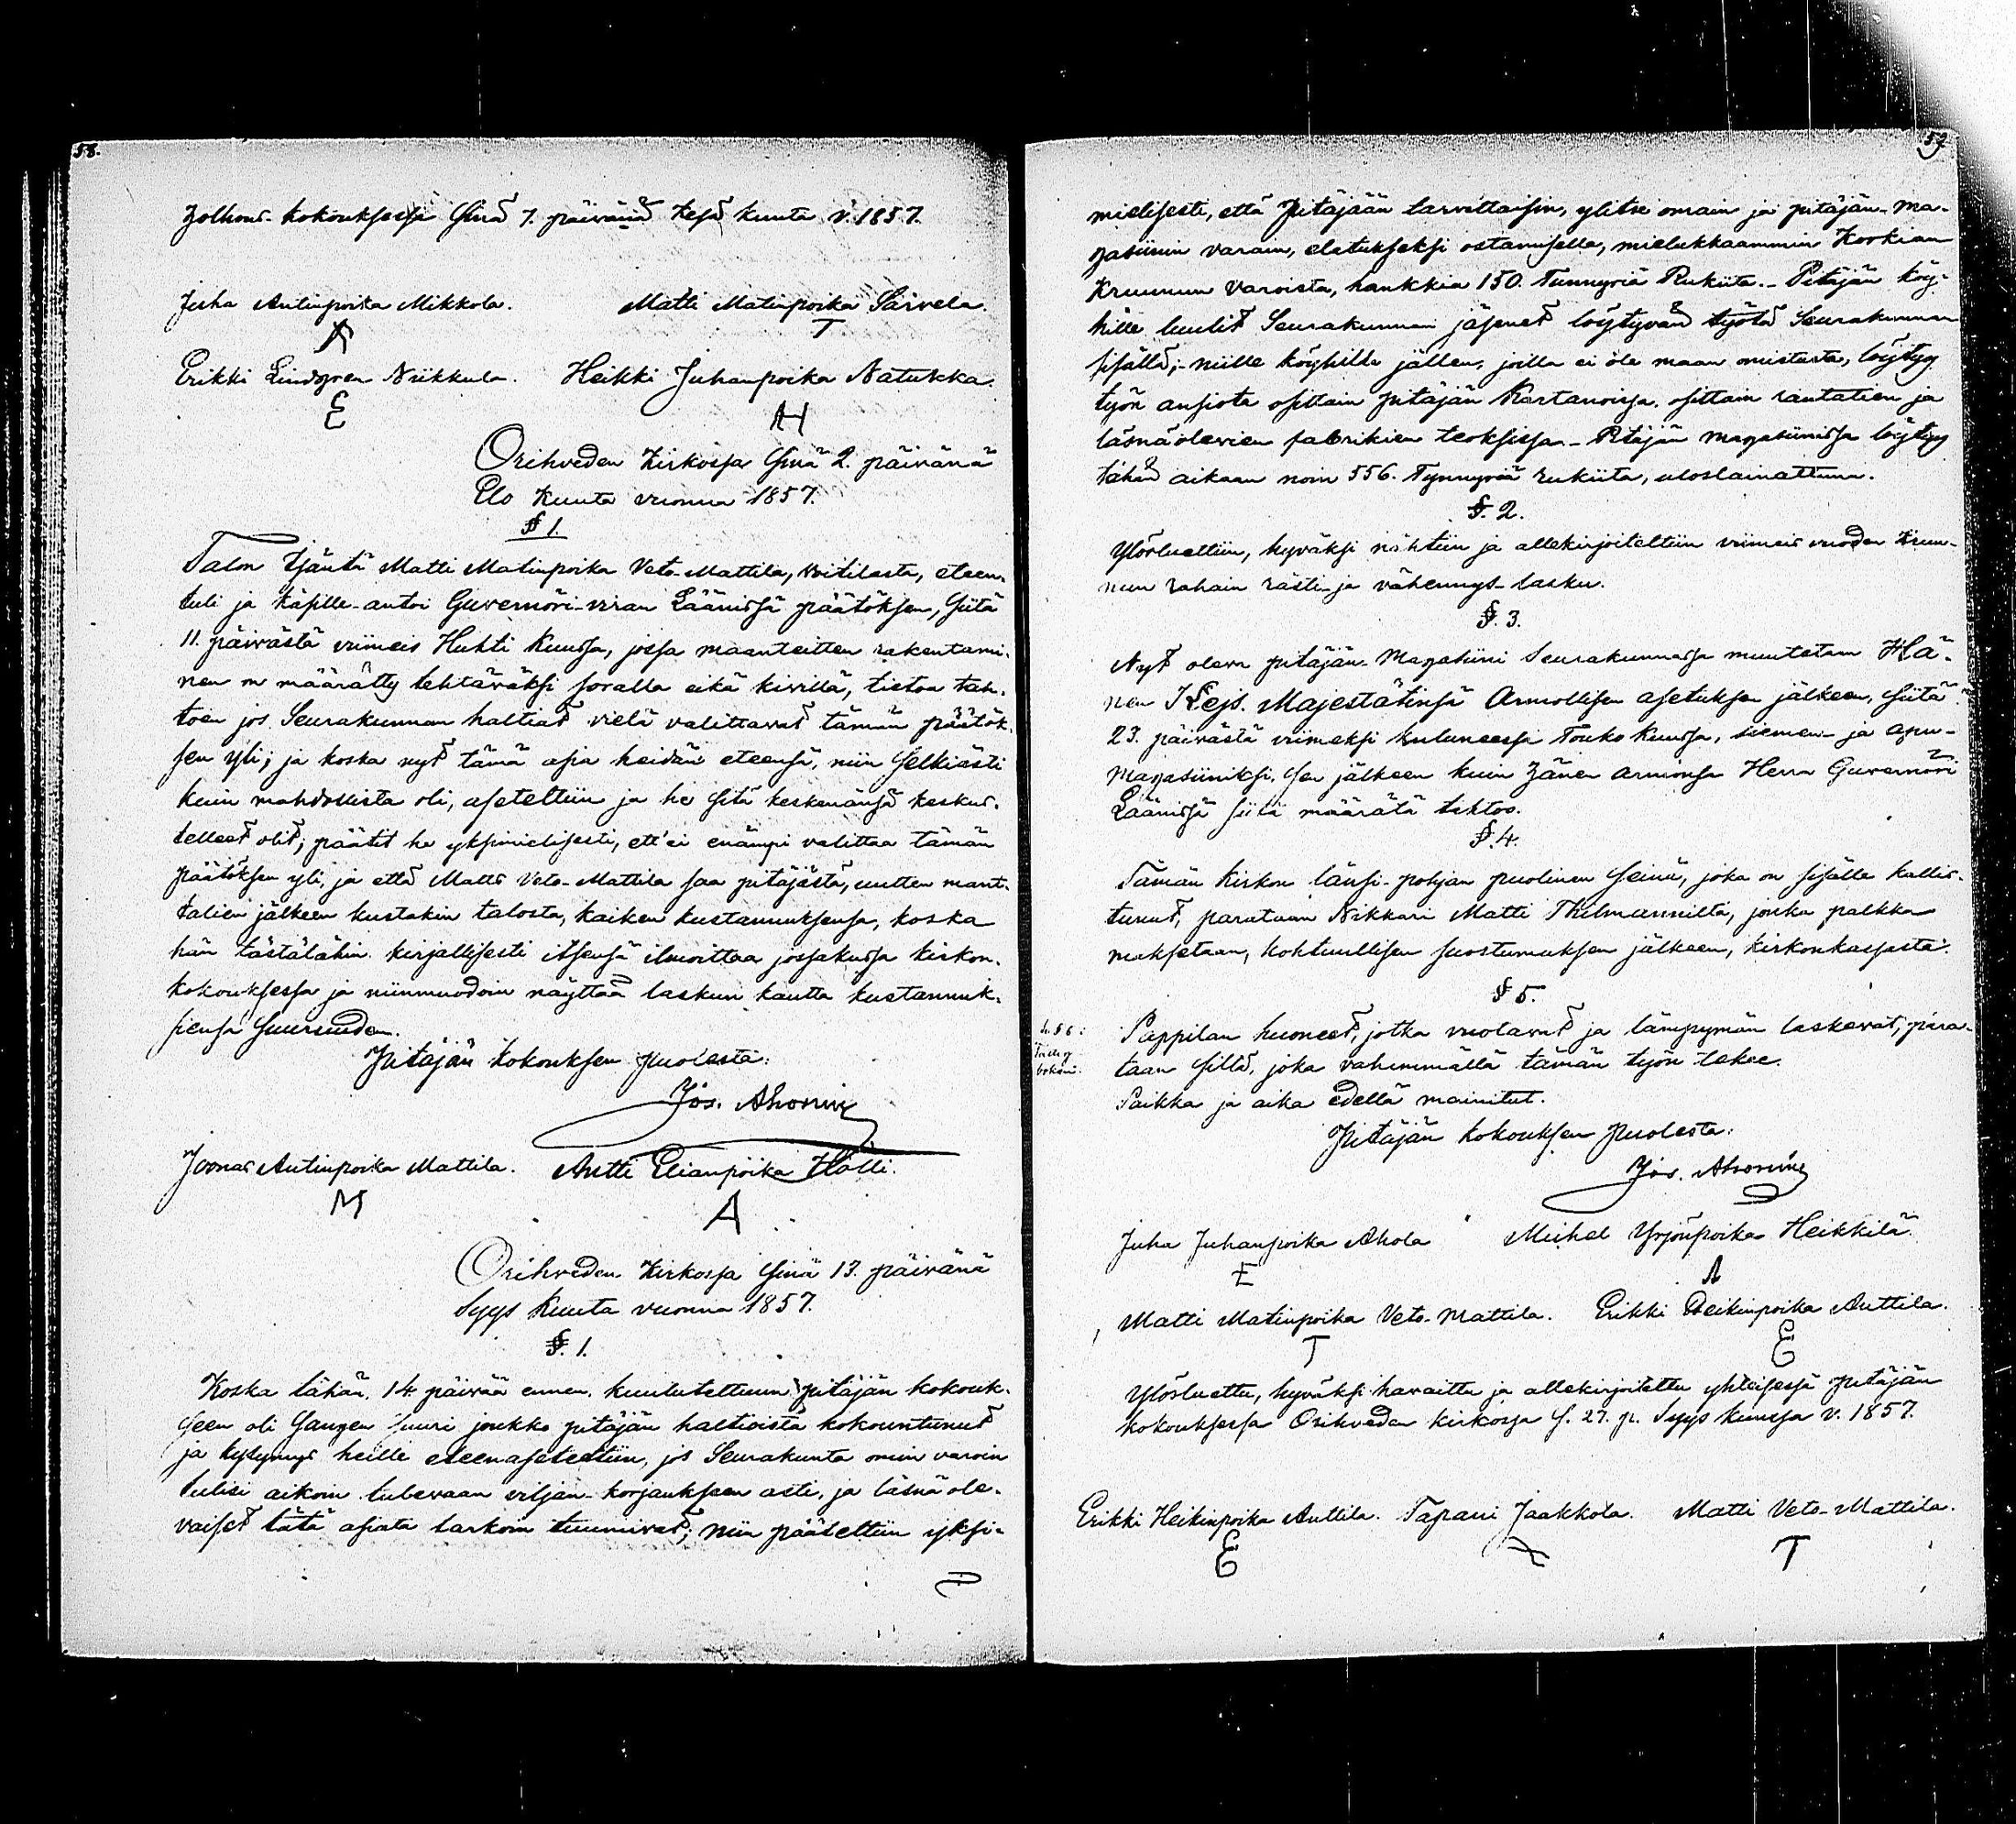 58.
kokouksessa sinä 7. päivänä kesä kuuta v. 1857.
Juha Antinpoika Mikkola. Matti Matinpoika Särvela.
T
Erikki Lindgren Niikkula. Heikki Juhanpoika Natukka.
E H
Orihveden Kirkossa sinä 2. päivänä
Elo kuuta vuonna 1857.
§ 1.
Talon Isäntä Matti Matinpoika Veto-Mattila, Voitilasta, eteen-
tuli ja käsille-antoi Guvernöri-viran Läänissä päätöksen, siitä
11. päivästä viimeis Huhti kuussa, jossa maanteitten rakentami-
nen on määrätty tehtäväksi soralla eikä kivillä, tietoa tah-
toen jos Seurakunnan haltiat vielä valittavat tämän päätök-
sen yli; ja koska nyt tämä asia heidän eteensä, niin selkiästi
kuin mahdollista oli, asetettiin ja he sitä keskenänsä keskus-
telleet olit; päätit he yksimielisesti, ett'ei enämpi valittaa tämän
päätöksen yli, ja että Matti Veto-Mattila saa pitäjästä, uutten mant-
talien jälkeen kustakin talosta, kaiken kustannuksensa, koska
hän tästälähin kirjallisesti itsensä ilmoittaa jossakussa kirkon-
kokouksessa ja niinmuodoin näyttää laskun kautta kustannuk-
siensa suuruuden.
Pitäjän kokouksen puolesta:
Jos. Ahonius
Joonas Antinpoika Mattila. Antti Elianpoika Hölli.
M A
Orihveden Kirkossa sinä 13. päivänä
Syys kuuta vuonna 1857.
§. 1.
Koska tähän, 14 päivää ennen, kuulutettuun pitäjän kokouk-
seen oli sangen suuri joukko pitäjän haltioista kokountunut
ja kysymys heille eteenasetettiin, jos Seurakunta omin varoin
tulisi aikoin tulevaan viljan-korjaukseen asti, ja läsnä ole-
vaiset tätä asiata tarkoin tuumivat; niin päätettiin yksi-
59
mielisesti, että Pitäjään tarvittaisin, ylitse omain ja pitäjän-ma-
gasiinin varain, elatukseksi ostamisella, mielukkaammin Korkian
Kruunun varoista, hankkia 150. Tunnyriä Rukiita.- Pitäjän köy-
hille luulit Seurakunnan jäsenet löytyvän työtä Seurakunnan
sisällä;- niille köyhille jällen, joilla ei ole maan omistusta, löytyy
työn ansiota osittain pitäjän Kartanoissa, osittain rautatien ja
läsnäolevien fabrikien teoksissa.- Pitäjän magasiinissa löytyy
tähän aikaan noin 556. Tynnyriä rukiita, uloslainattuna.
§. 2.
Ylösluettiin, hyväksi nähtiin ja allekirjoitettiin viimeis vuoden Kruu-
nun rahain rästi- ja vähennys-lasku.
§. 3.
Nyt oleva pitäjän-Magasiini Seurakunnassa muutetaan Hä-
nen Kejs. Majestätinsä Armollisen asetuksen jälkeen, siitä
23. päivästä viimeksi kuluneessa Touko kuussa, siemen- ja apu-
Magasiiniksi, sen jälkeen kuin Hänen armonsa Herra Guvernöri
Läänissä siitä määrätä tahtoo.
§. 4.
Tämän Kirkon länsi-pohjan puolinen seinä, joka on sisälle kallis-
tunut, parataan Nikkari Matti Thilmannilta, jonka palkka
maksetaan, kohtuullisen suostumuksen jälkeen, kirkonkassasta.
§ 5.
Pappilan huoneet, jotka vuotavat ja lämpymän laskevat, para-
taan siltä, joka vahemmällä tämän työn tekee.
Paikka ja aika edellä mainitut.
Pitäjän kokouksen puolesta:
Jos. Ahonius
Juha Juhanpoika Ahola Mihel Yrjönpoika Heikkilä
E A
Matti Matinpoika Veto-Mattila. Erikki Heikinpoika Anttila.
T E
Ylösluettu, hyväksi havaittu ja allekirjoitettu yhteisessä pitäjän
kokouksessa Orihveden kirkossa s. 27. p. Syys kuussa v. 1857.
Erikki Heikinpoika Anttila. Tapani Jaakkola. Matti Veto-Mattila.
E T